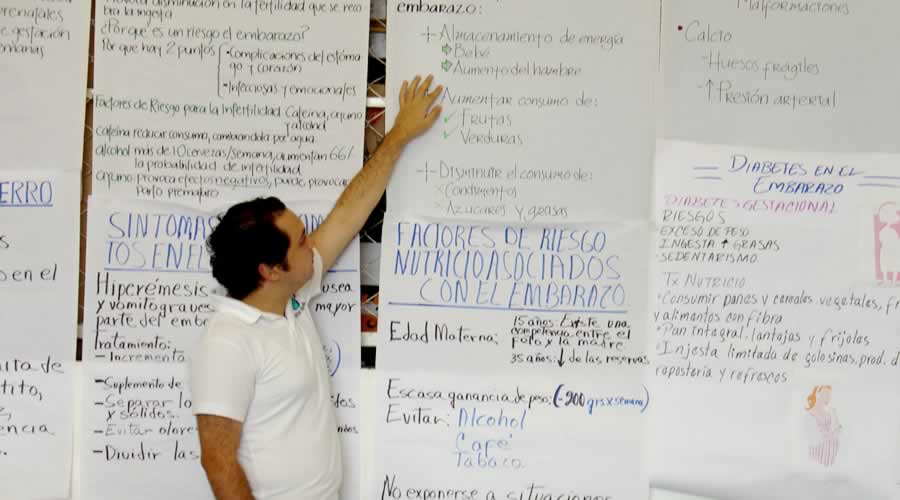 prenatales
e gestación
emanas
ERRO
s
o en el
uita de
tito,
encia
disminución en la fertilidad que se recu
bra la ingesta
¿Por que es un riesgo el embarazo?
Por que hay 2 puntos
•Complicaciones del estóma
go y corazón
•Infecciosas y emocionales
Factores de Riesgo para la Infertilidad Cafeína, cigarro
y alcohol
cafeína reducir consumo, cambiandola por agua
alcohol más de 10 cervezas/semana, aumentan 66%
la probabilidad de infertilidad
cigarro: provoca efectos negativos, puede, provocar
Parto prematuro
SINTOMAS
TOS EN EL
Hipcrémesis
usea
y vomito graves
mayor
parte del emb
Tratamiento:
- Incrementa
- Suplemento de
- Separar lo
idos
y sólidos.
- Evitar olore
- Dividir las
embarazo:
+ Almacenamiento de energía
Bebé
Aumento del hambre
Aumentar consumo de:
✓ Frutas
✓ Verduras
+ Disminuir el consumo de:
x Condimentos
x Azucares y grasas
FACTORES DE RIESGO
NUTRICIO ASOCIADOS
CON EL EMBARAZO.
Edad Materna:
15 años: Existe una
competencia entre el
feto y la madre.
35 años: ↓ de las reservas
Escasa ganancia de peso: (-200 grs x semana)
Evitar: Alcohol
Café
Tabaco
No exponerse a situaciones
Malformaciones
• Calcio
- Huesos frágiles
- ↑ Presión arterial
DIABETES EN EL
EMBARAZO
DIABETES GESTACIONAL
RIESGOS
- EXCESO DE PESO
- INGESTA ↑ GRASAS
- SEDENTARISMO
Tx NUTRICIO
• Consumir panes y cereales, vegetales, fr
y alimentos con fibra
• Pan integral, lantajas y frijoles
• Injesta limitada de golosinas, prod. d
repostería y refrescos